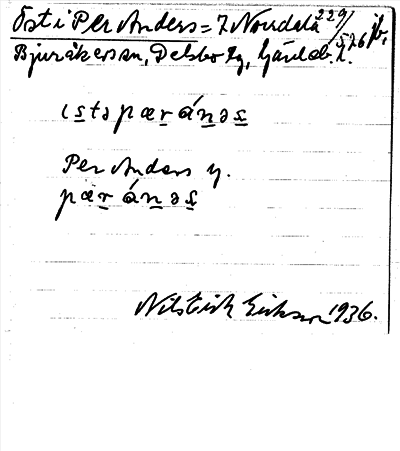 Öst i Per Anders = 7 Norrdala 229/576 jb.
Bjuråkers sn, Delsbo tg, Gävleb. l.
ıstə pæranəs
Per Anders y.
pæránəs
Nils Erik Eriksson 1936.